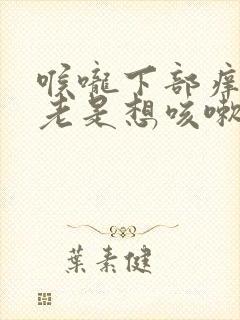 喉嚨下部痒
老是想咳嗽
葉素健